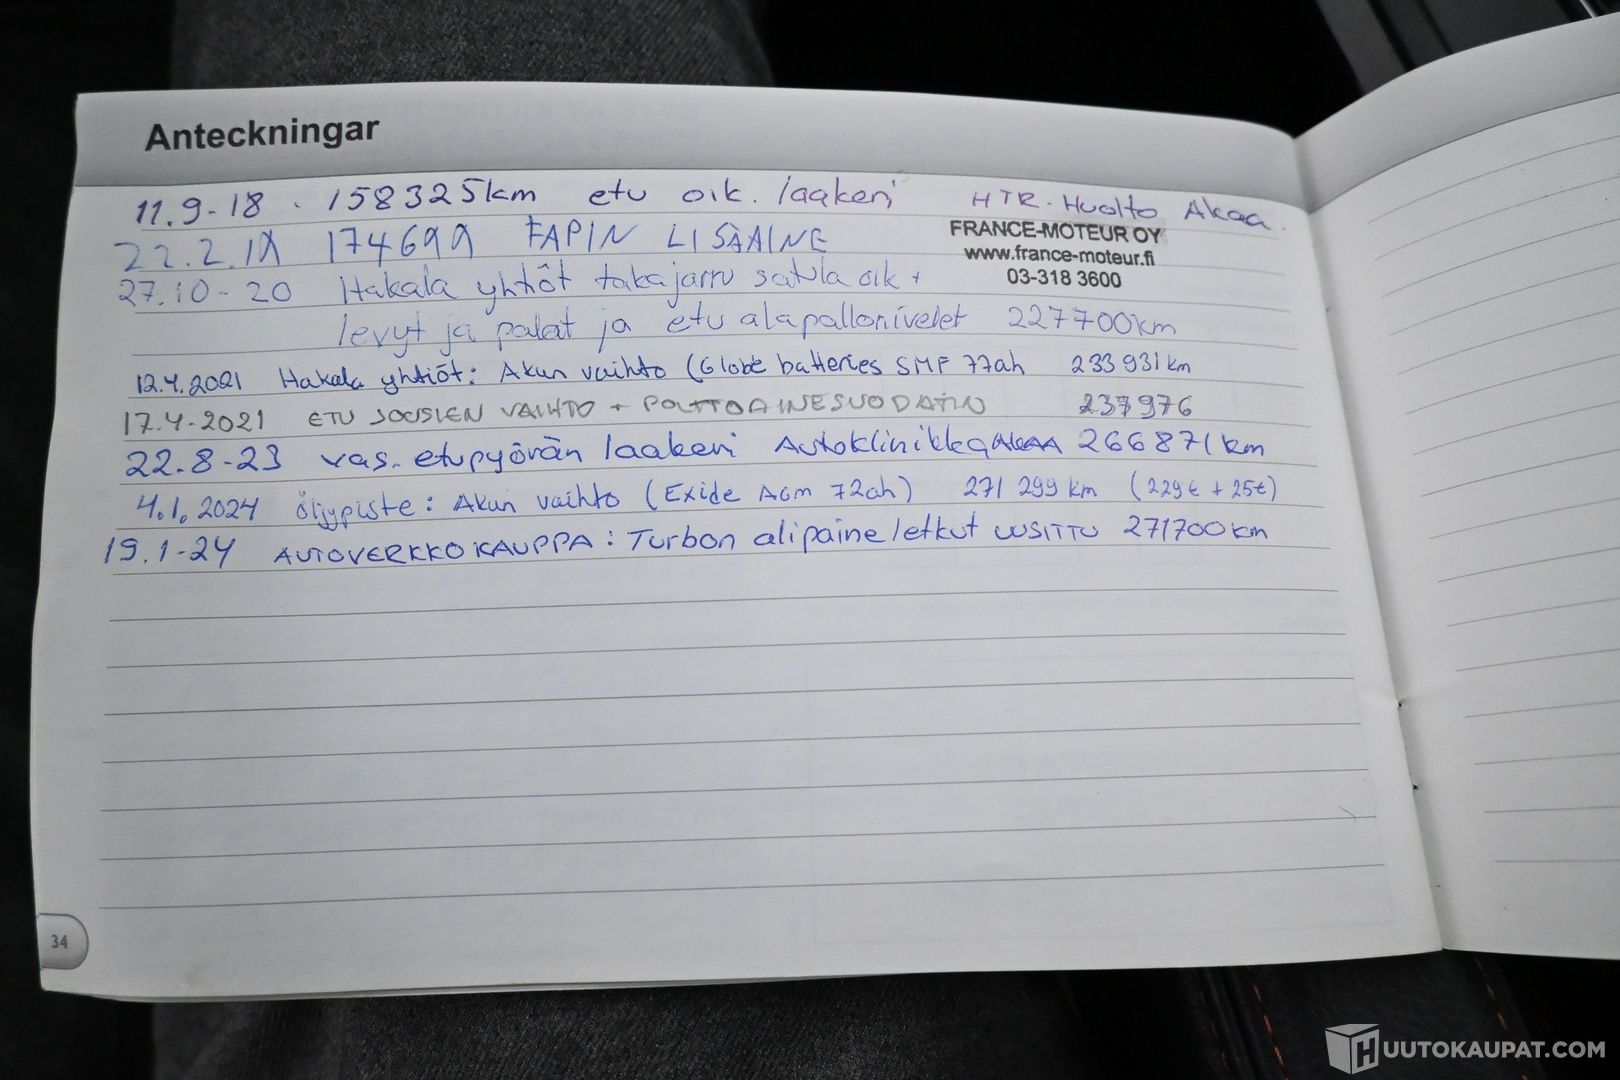 Anteckningar
11.9-18 . 158325km etu oik. laakeri HTR-Huolto Akaa.
22.2.19 174699 FAPIN LISÄAINE
FRANCE-MOTEUR OY
www.france-moteur.fi
03-318 3600
27.10-20 Hakala yhtiöt takajarru satula oik +
levyt ja palat ja etu alapallonivelet 227700km
12.4.2021 Hakala yhtiöt: Akun vaihto (Globe batteries SMF 77ah 233931km
17.4-2021 ETU JOUSIEN VAIHTO + POLTTOAINESUODATIN 237976
22.8-23 vas. etupyörän laakeri Autoklinikka Akaa 266871km
4.1.2024 öljypiste: Akun vaihto (Exide AGM 72ah) 271 299 km (229€ + 25€)
19.1-24 AUTOVERKKOKAUPPA: Turbon alipaineletkut UUSITTU 271700km
34
HUUTOKAUPAT.COM